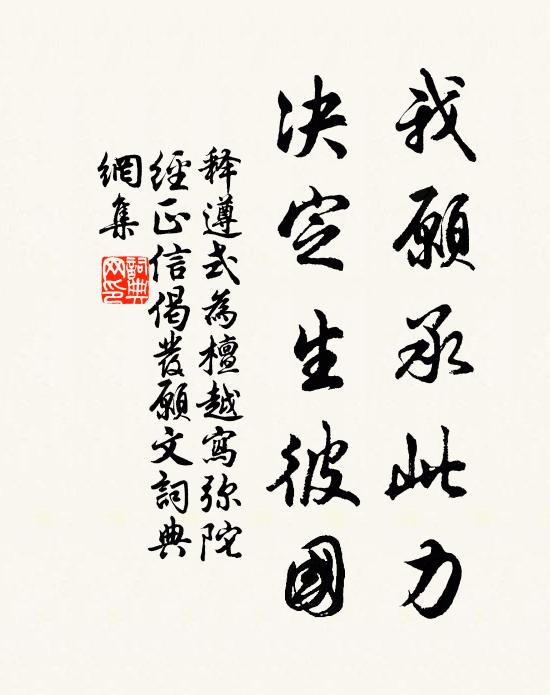 我願承此力
決定生彼國
释遵式為檀越寫弥陀
經正信偈發願文詞典
網集
詞典網印